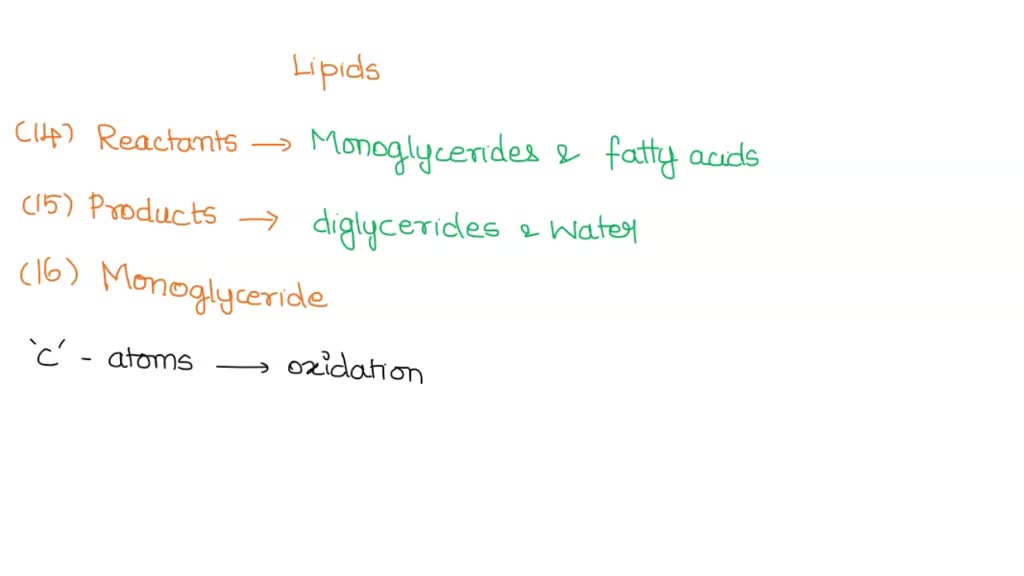 Lipids
(14) Reactants → Monoglycerides & fatty acids
(15) Products → diglycerides & Water
(16) Monoglyceride
'C' - atoms → oxidation